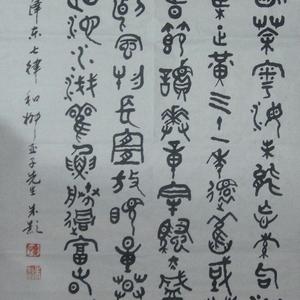 茶粵海未能忘索句
葉正黃三十一年還舊國
時節讀華章牢騷太盛
斷風物長宜放眼量莫
池水淺觀魚勝過富春
澤东七律和柳亚子先生